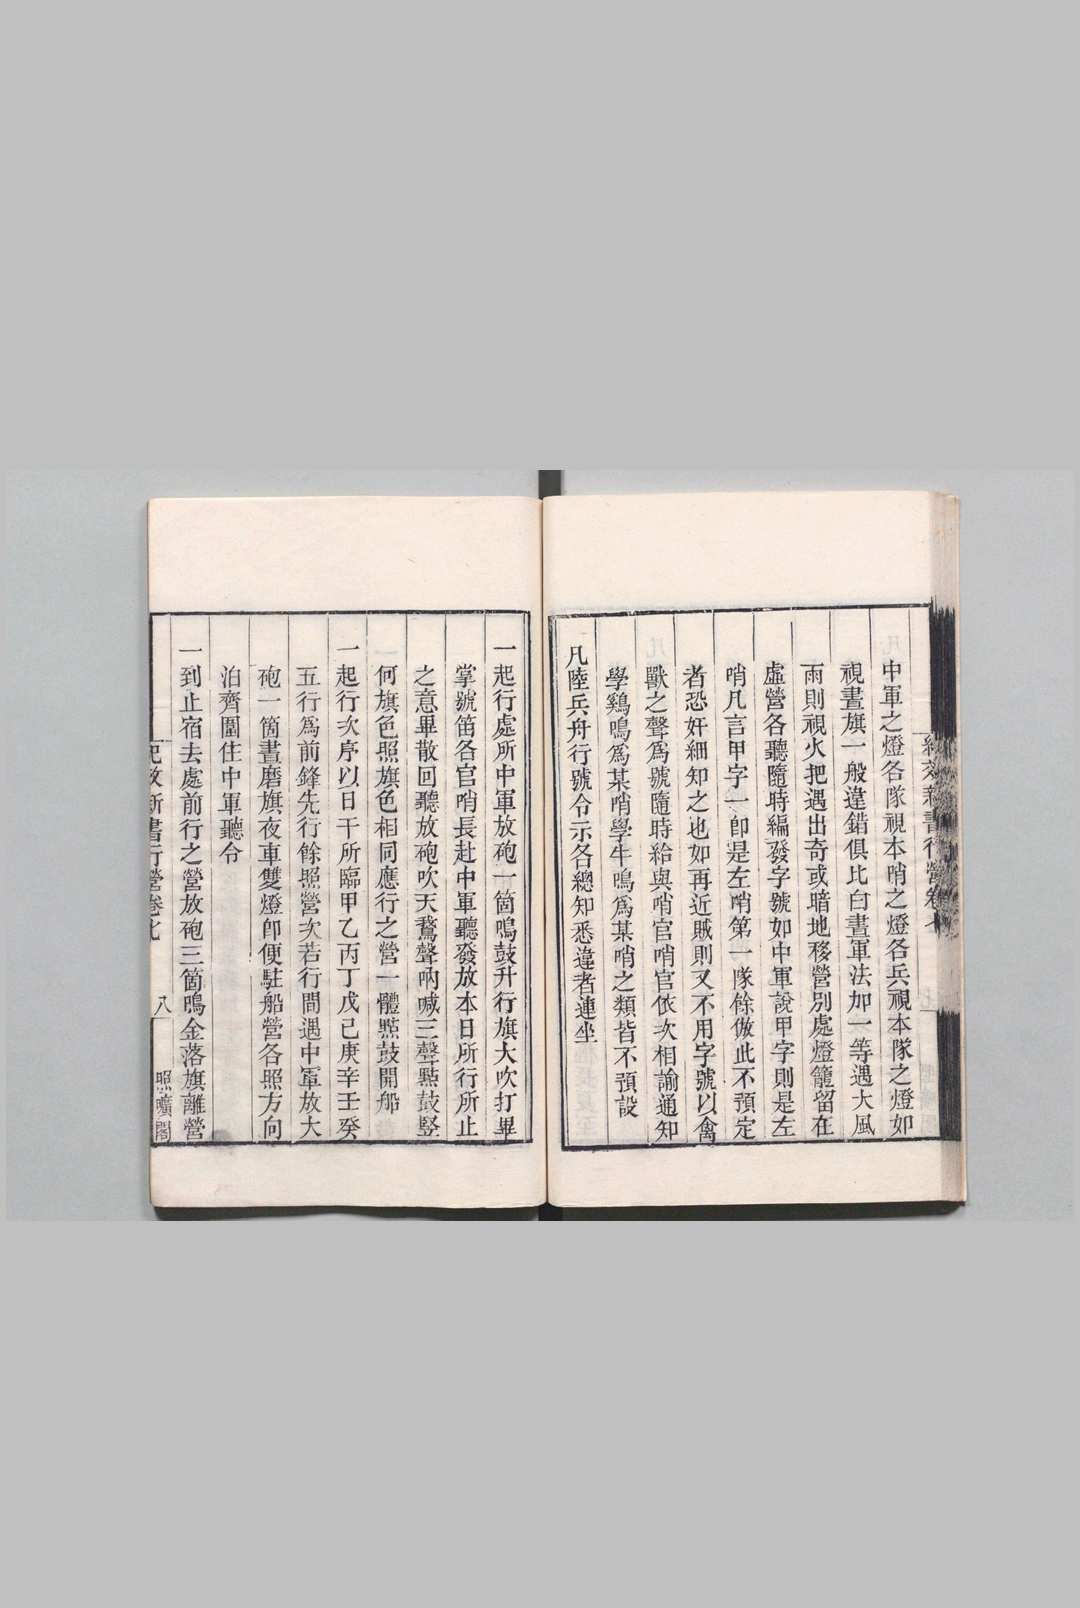 中軍之燈各隊視本哨之燈各兵視本隊之燈如
視晝旗一般違錯俱比白晝軍法加一等遇大風
雨則視火把遇出奇或暗地移營別處燈籠留在
虛營各聽隨時編發字號如中軍說甲字則是左
哨凡言甲字一卽是左哨第一隊餘倣此不預定
者恐奸細知之也如再近賊則又不用字號以禽
獸之聲爲號隨時給與哨官哨官依次相諭通知
學鷄鳴爲某哨學牛鳴爲某哨之類皆不預設
凡陸兵舟行號令示各總知悉違者連坐
一起行處所中軍放砲一箇鳴鼓升行旗大吹打畢
掌號笛各官哨長赴中軍聽發放本日所行所止
之意畢散回聽放砲吹天鵞聲吶喊三聲㸃鼓竪
何旗色照旗色相同應行之營一體㸃鼓開船
一起行次序以日干所臨甲乙丙丁戊己庚辛壬癸
五行爲前鋒先行餘照營次若行間遇中軍放大
砲一箇晝磨旗夜車雙燈卽便駐船營各照方向
泊齊圍住中軍聽令
一到止宿去處前行之營放砲三箇鳴金落旗離營
紀效新書行營卷七　八　照曠閣